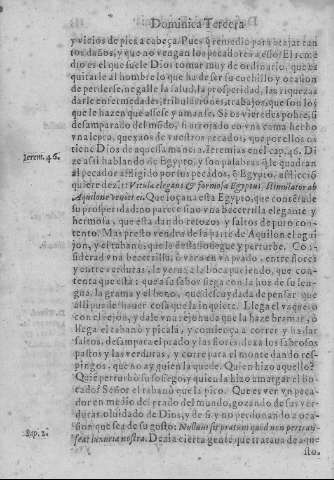 Dominica Tercera
y vicios de pies a cabeça. Pues q̃ remedio para atajar tan
tos daños, y que no vengan los pecadores a esso? El reme
dio es el que suele Dios tomar muy de ordinario, que es
quitarle al hombre lo que ha de ser su cuchillo y ocasion
de perderse, negalle la salud, la prosperidad, las riquezas
darle enfermedades, tribulaciones, trabajos, que son los
que le hazen que assese y amanse. Si os vieredes pobre, si
desamparado del mũdo, si arrojado en vna cama hecho
vna lepra, quexaos de vuestros pecados, que por ellos os
Ierem. 46.
tiene Dios de aquessa manera. Ieremias en el cap. 46. Di
ze assi hablando de Egypto, y son palabras q̃ le quadran
al pecador afligido por sus pecados, ò Egypto, afliccion
quiere dezir: Vitula elegans & formosa Egyptus, stimulator ab
Aquilone veniet ei. Que loçana està Egypto, que contẽta de
su prosperidad, no parece sino vna bezerrilla elegante y
hermosa, que està dando retoços y saltos de puro con-
tento. Mas presto vendra de la parte de Aquilon el agui
jon, y el tabano, que la desassosiegue y perturbe. Co
siderad vna bezerrilla, ò vaca en vn prado, entre flores
y entre verduras, la yerua a la boca paciendo, que con-
tenta que està: que a su sabor siega con la hoz de su len
gua, la grama y el heno, que descuydada de pensar que
alli puede hauer cosa que la inquiete. Llega el vaquero
con el rejon, y dale vna rejonada que la haze bramar, ò
llega el tabano y picala, y comiença a correr y ha dar
saltos, desampara el prado y las flores, dexa los sabrosos
pastos y las verduras, y corre para el monte dando res-
pingos, que no ay quien la quede. Quien hizo aquello?
Quiẽ perturbò su sosiego, y quien la hizo amargar el bo-
cado? Señor el tabano que la pico. Que es ver vn peca-
dor en medio del prado del mundo, gozando de sus ver-
duras, oluidado de Dios, y de si y no perdonando a oca-
Sap. 2.
sion que sea de su gosto: Nullum sit pratum quod non pertran-
seat luxuria nostra. Dezia cierta gente que trataua de aque
sto.